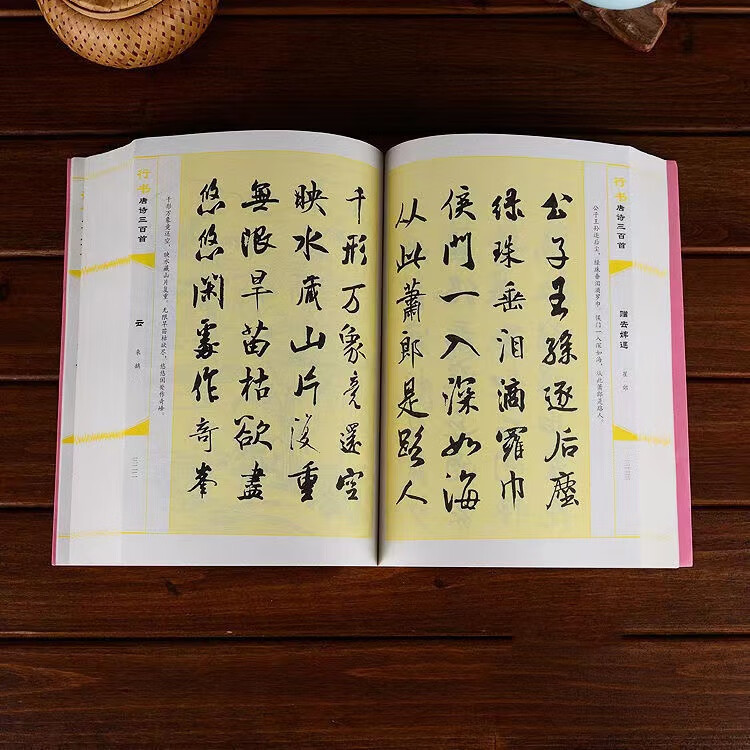 行书唐诗三百首
公子王孙逐后尘，绿珠垂泪滴罗巾。侯门一入深如海，从此萧郎是路人。
公子王孫逐后塵
绿珠垂泪滴羅巾
侯門一入深如海
从此蕭郎是路人
千形万象竟還空
映水藏山片復重
無限旱苗枯欲盡
悠悠闲處作奇峯
千形万象竟还空，映水藏山片复重。无限旱苗枯欲尽，悠悠闲处作奇峰。
行书唐诗三百首
云
来鹄